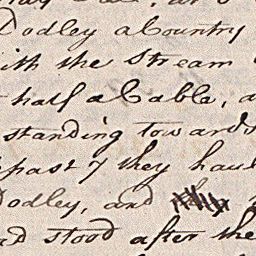 Dodley a Country
ith the Stream
half a Cable, a
standing towards
past 7 they haul
Dodley, and
ad stood after the